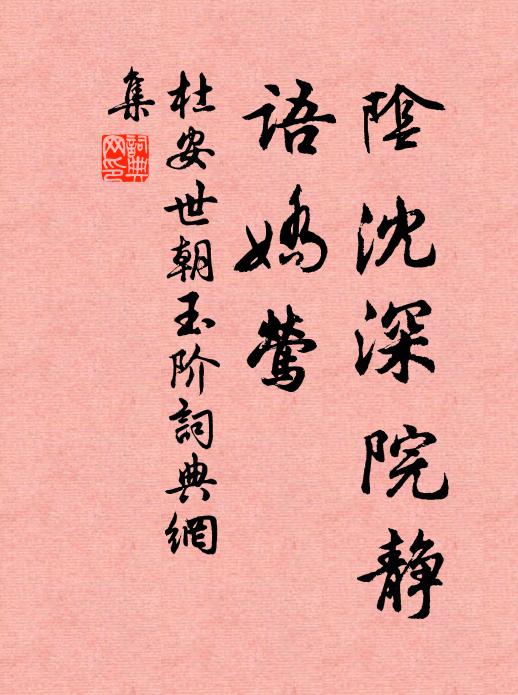 陰沈深院静
語嬌鶯
杜安世朝玉阶詞典網
集
詞典网印